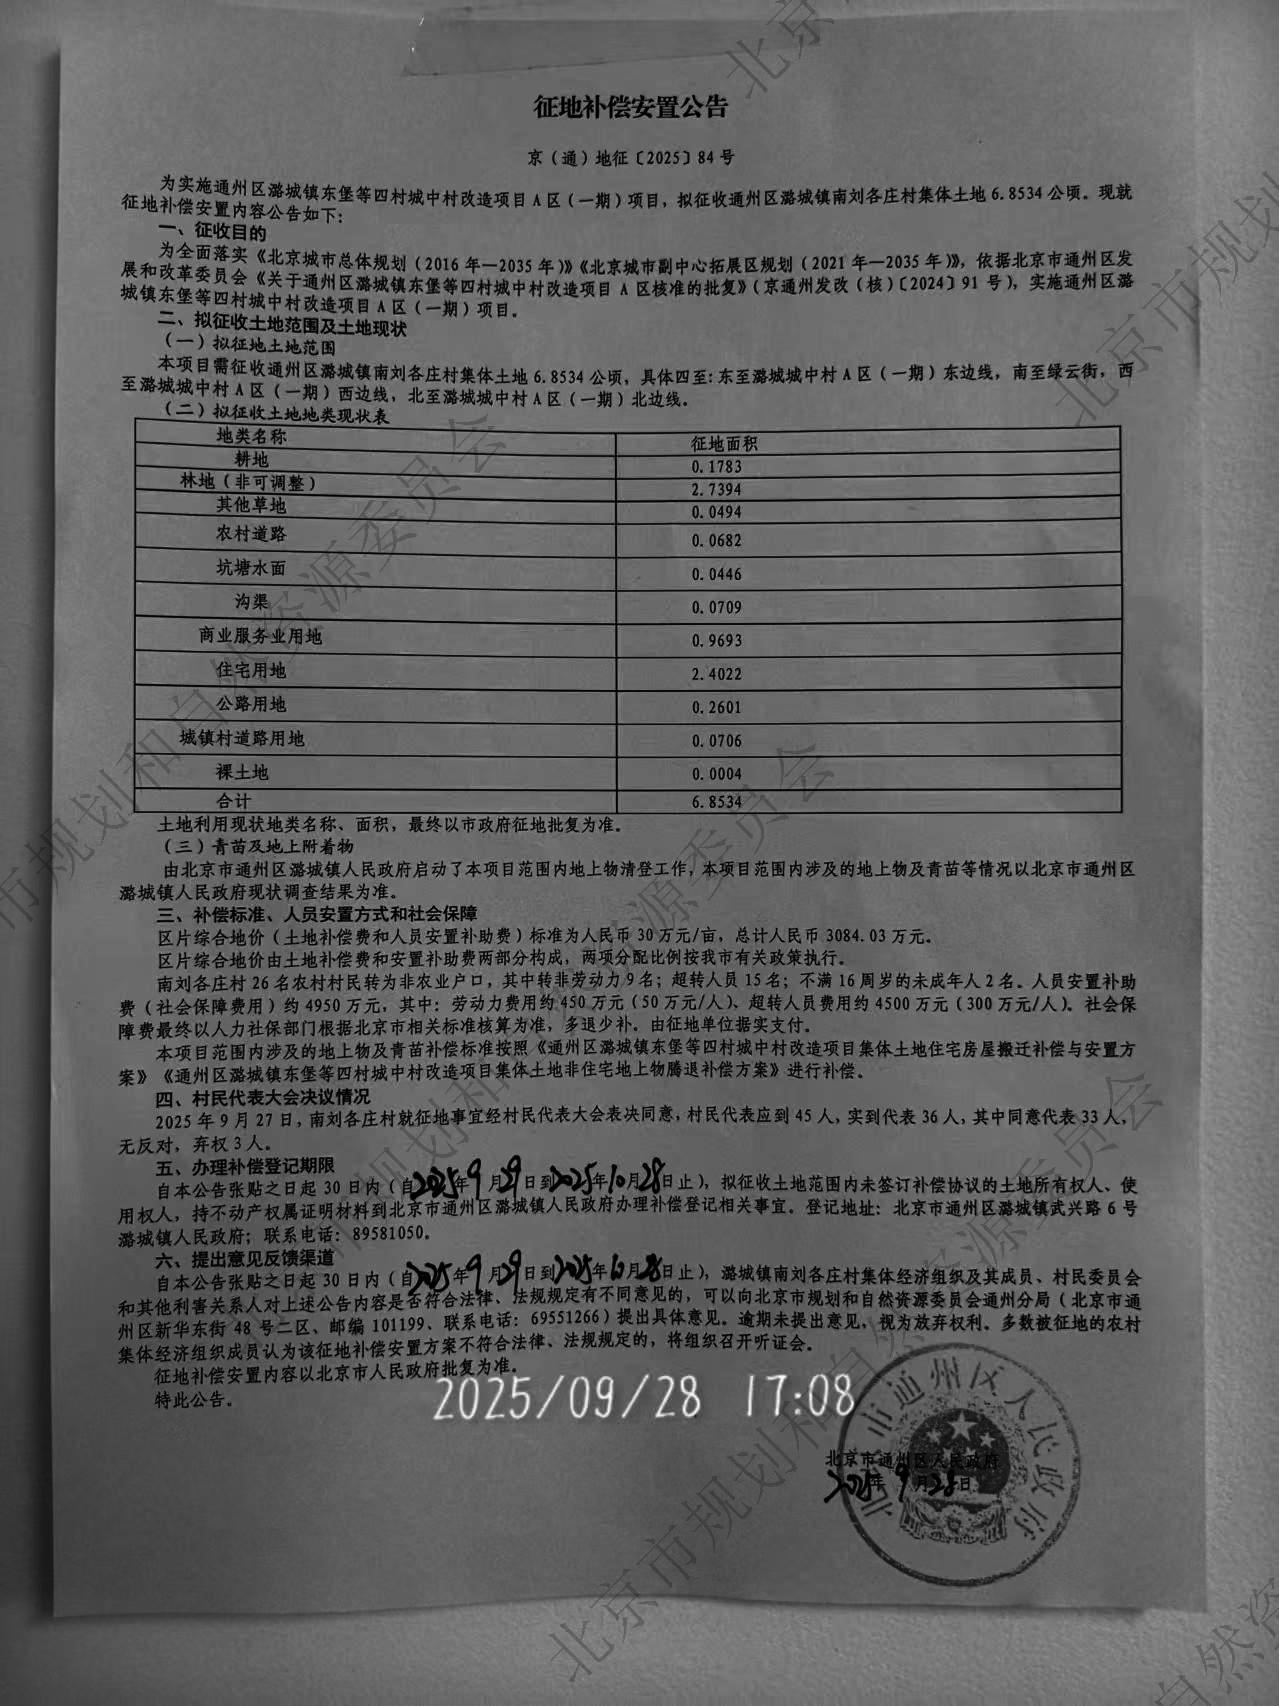 征地补偿安置公告
京（通）地征〔2025〕84号
为实施通州区潞城镇东堡等四村城中村改造项目A区（一期）项目，拟征收通州区潞城镇南刘各庄村集体土地6.8534公顷。现就
征地补偿安置内容公告如下：
一、征收目的
为全面落实《北京城市总体规划（2016年—2035年）》《北京城市副中心拓展区规划（2021年—2035年）》，依据北京市通州区发
展和改革委员会《关于通州区潞城镇东堡等四村城中村改造项目A区核准的批复》（京通州发改（核）〔2024〕91号），实施通州区潞
城镇东堡等四村城中村改造项目A区（一期）项目。
二、拟征收土地范围及土地现状
（一）拟征地土地范围
本项目需征收通州区潞城镇南刘各庄村集体土地6.8534公顷，具体四至：东至潞城城中村A区（一期）东边线，南至绿云街，西
至潞城城中村A区（一期）西边线，北至潞城城中村A区（一期）北边线。
（二）拟征收土地地类现状表
地类名称 征地面积
耕地 0.1783
林地（非可调整） 2.7394
其他草地 0.0494
农村道路 0.0682
坑塘水面 0.0446
沟渠 0.0709
商业服务业用地 0.9693
住宅用地 2.4022
公路用地 0.2601
城镇村道路用地 0.0706
裸土地 0.0004
合计 6.8534
土地利用现状地类名称、面积，最终以市政府征地批复为准。
（三）青苗及地上附着物
由北京市通州区潞城镇人民政府启动了本项目范围内地上物清登工作，本项目范围内涉及的地上物及青苗等情况以北京市通州区
潞城镇人民政府现状调查结果为准。
三、补偿标准、人员安置方式和社会保障
区片综合地价（土地补偿费和人员安置补助费）标准为人民币30万元/亩，总计人民币3084.03万元。
区片综合地价由土地补偿费和安置补助费两部分构成，两项分配比例按我市有关政策执行。
南刘各庄村26名农村村民转为非农业户口，其中转非劳动力9名；超转人员15名；不满16周岁的未成年人2名。人员安置补助
费（社会保障费用）约4950万元，其中：劳动力费用约450万元（50万元/人）、超转人员费用约4500万元（300万元/人）。社会保
障费最终以人力社保部门根据北京市相关标准核算为准，多退少补。由征地单位据实支付。
本项目范围内涉及的地上物及青苗补偿标准按照《通州区潞城镇东堡等四村城中村改造项目集体土地住宅房屋搬迁补偿与安置方
案》《通州区潞城镇东堡等四村城中村改造项目集体土地非住宅地上物腾退补偿方案》进行补偿。
四、村民代表大会决议情况
2025年9月27日，南刘各庄村就征地事宜经村民代表大会表决同意，村民代表应到45人，实到代表36人，其中同意代表33人，
无反对，弃权3人。
五、办理补偿登记期限
自本公告张贴之日起30日内（自2025年9月29日到2025年10月28日止），拟征收土地范围内未签订补偿协议的土地所有权人、使
用权人，持不动产权属证明材料到北京市通州区潞城镇人民政府办理补偿登记相关事宜。登记地址：北京市通州区潞城镇武兴路6号
潞城镇人民政府；联系电话：89581050。
六、提出意见反馈渠道
自本公告张贴之日起30日内（自2025年9月29日到2025年10月28日止），潞城镇南刘各庄村集体经济组织及其成员、村民委员会
和其他利害关系人对上述公告内容是否符合法律、法规规定有不同意见的，可以向北京市规划和自然资源委员会通州分局（北京市通
州区新华东街48号二区、邮编101199、联系电话：69551266）提出具体意见。逾期未提出意见，视为放弃权利。多数被征地的农村
集体经济组织成员认为该征地补偿安置方案不符合法律、法规规定的，将组织召开听证会。
征地补偿安置内容以北京市人民政府批复为准。
特此公告。
2025/09/28 17:08
北京市通州区人民政府
2025年9月28日
北京市通州区人民政府
北京市规划和自然资源委员会